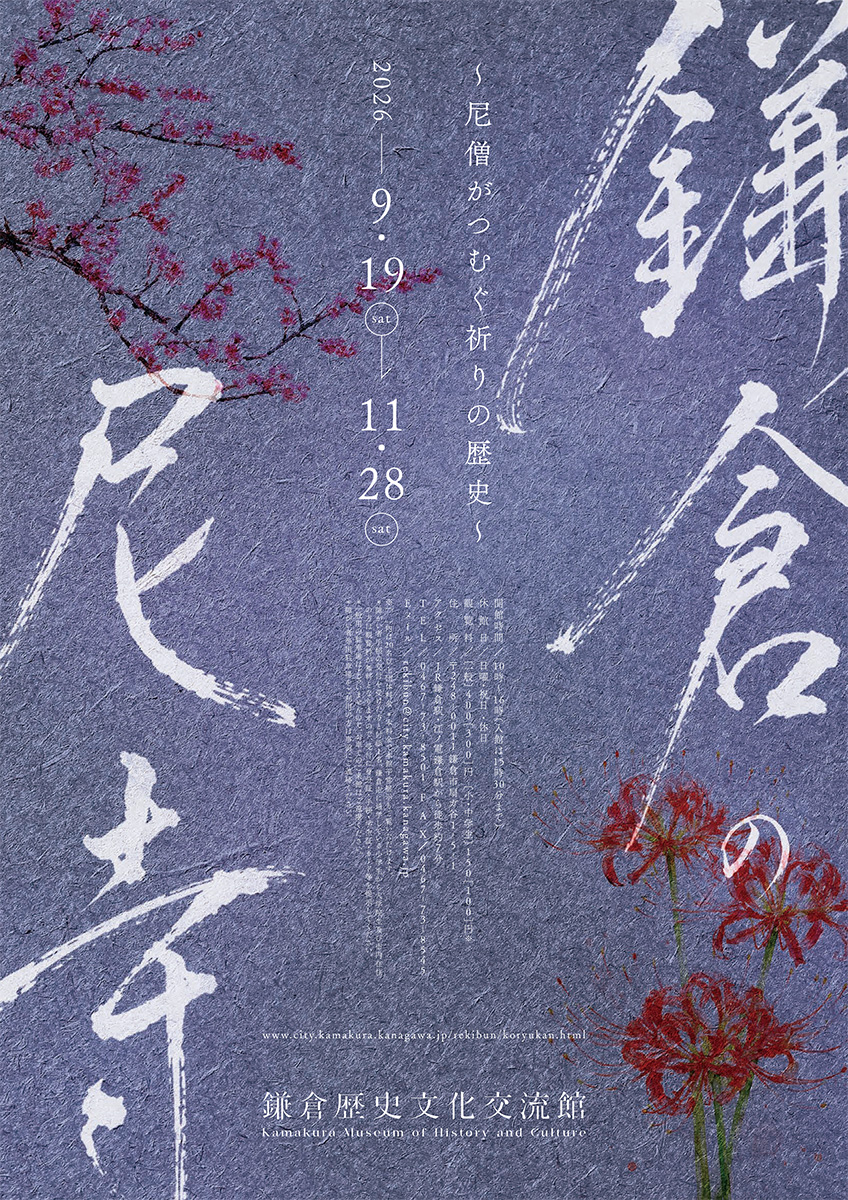 鎌倉の
尼寺
～尼僧がつむぐ祈りの歴史～
2026 ― 9・19 sat ― 11・28 sat
開館時間／10時～16時（入館は15時30分まで）
休館日／日曜・祝日・休日
観覧料／一般：400［300］円 小・中学生：150［100］円※
住所／〒248-0011 鎌倉市扇ガ谷1-5-1
アクセス／JR鎌倉駅・江ノ電鎌倉駅から徒歩約7分
TEL／0467-73-8501 FAX／0467-73-8545
Eメール／rekibun@city.kamakura.kanagawa.jp
www.city.kamakura.kanagawa.jp/rekibun/koryukan.html
鎌倉歴史文化交流館
Kamakura Museum of History and Culture